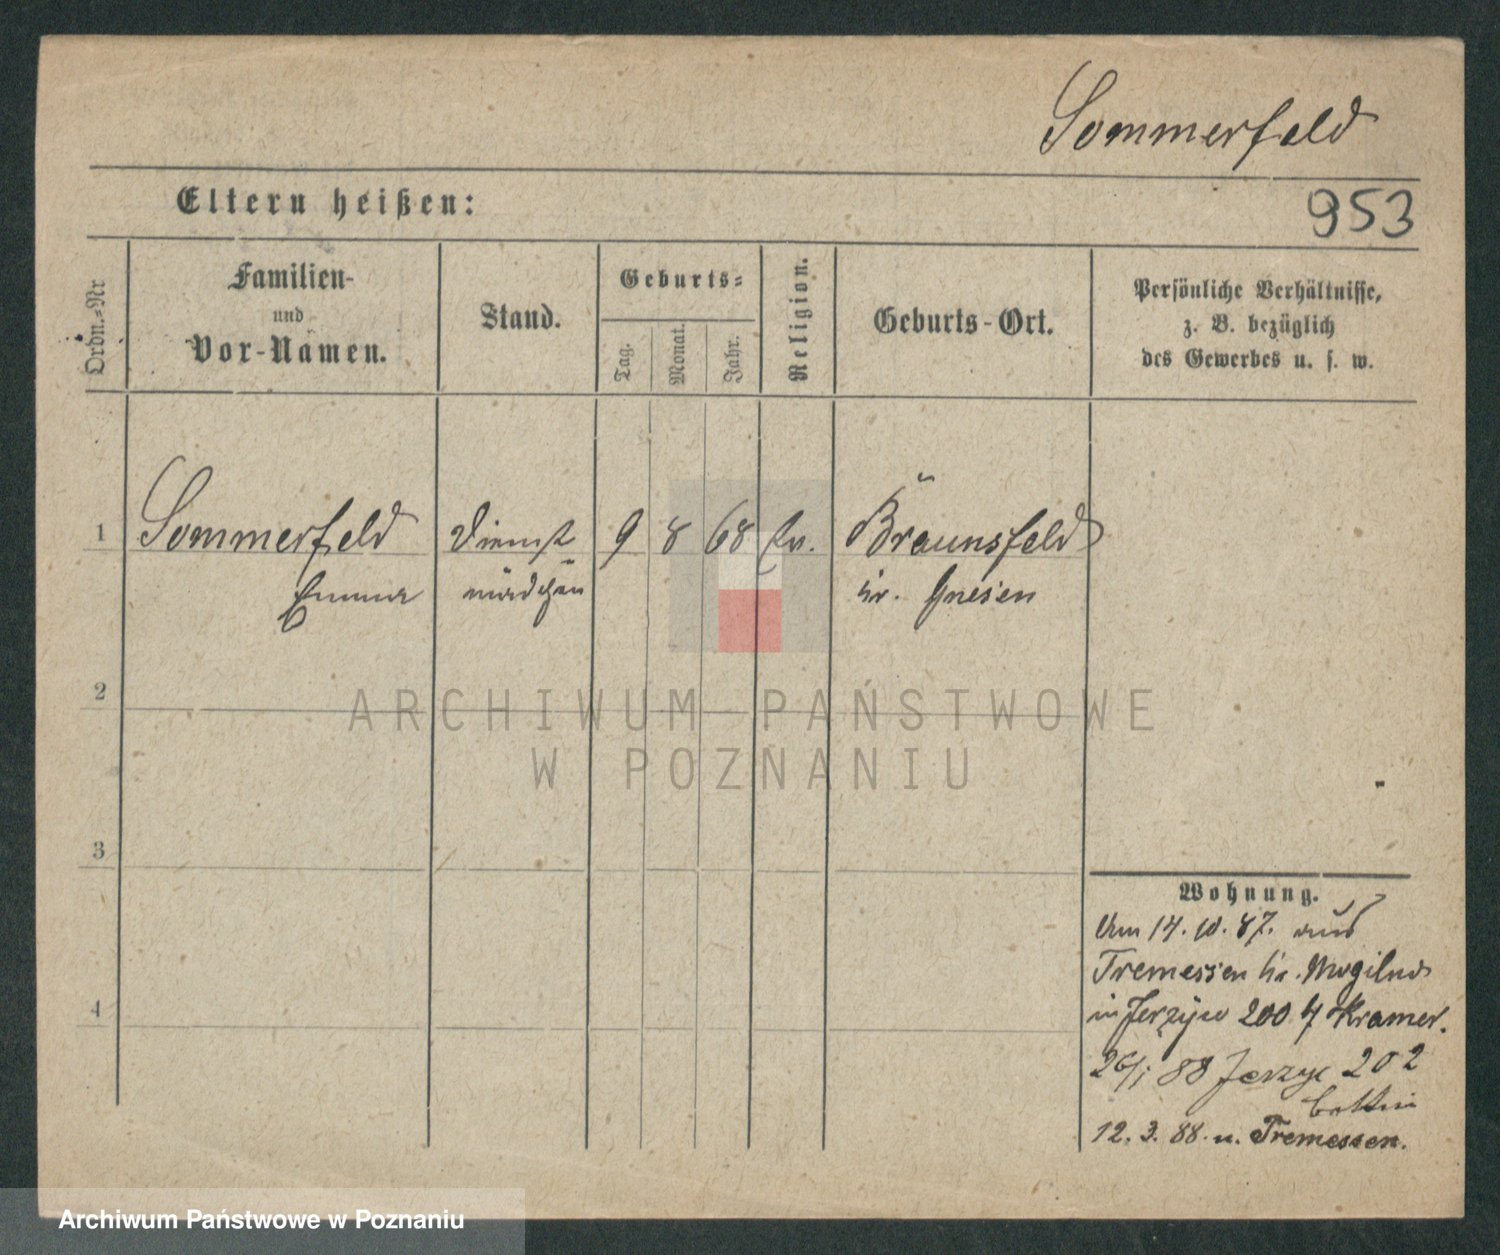 Sommerfeld
Eltern heißen:
953
Ordn.-Nr
Familien-
und
Vor-Namen.
Stand.
Geburts-
Tag.
Monat.
Jahr.
Religion.
Geburts-Ort.
Persönliche Verhältnisse,
z. B. bezüglich
des Gewerbes u. s. w.
1 Sommerfeld Dienst 9 8 68 Ev. Braunsfeld
Emma mädchen Kr. Gnesen
2
ARCHIWUM PAŃSTWOWE
W POZNANIU
3
4
Wohnung.
Am 14. 10. 87. aus
Tremessen Kr. Mogilno
in Jerzyce 200 b/ Kramer.
26/1 88 Jerzyc 202
12. 3. 88 n. Tremessen.
Archiwum Państwowe w Poznaniu